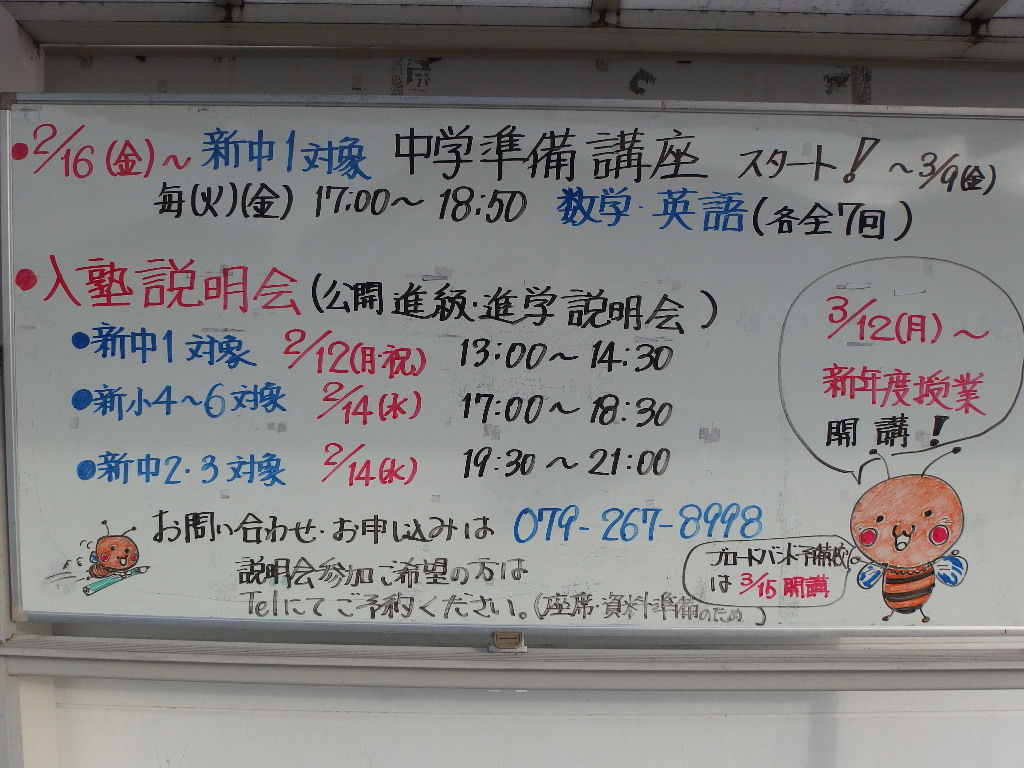 ●2/16(金)～新中1対象 中学準備講座 スタート！～3/9(金)
毎(火)(金) 17:00～18:50 数学・英語(各全7回)
●入塾説明会(公開進級・進学説明会)
●新中1対象 2/12(月・祝) 13:00～14:30
●新小4～6対象 2/14(水) 17:00～18:30
●新中2・3対象 2/14(水) 19:30～21:00
お問い合わせ・お申し込みは 079-267-8998
説明会参加ご希望の方は
Telにてご予約ください。(座席・資料準備のため)
3/12(月)～
新年度授業
開講！
ブロードバンド予備校
は3/15開講